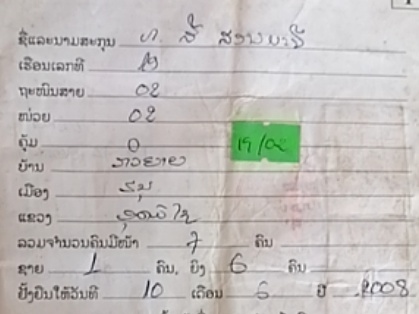 ຊື່ແລະນາມສະກຸນ ທ. ສີ
ເຮືອນເລກທີ 19
ຖະໜົນສາຍ 02
ໜ່ວຍ 02
ຄຸ້ມ 0 19/02
ບ້ານ
ເມືອງ ຮຸນ
ແຂວງ ອຸດົມໄຊ
ລວມຈຳນວນຄົນມີໜ້າ 7 ຄົນ
ຊາຍ 1 ຄົນ, ຍິງ 6 ຄົນ
ຢັ້ງຢືນໃຫ້ວັນທີ 10 ເດືອນ 6 ປີ 2008